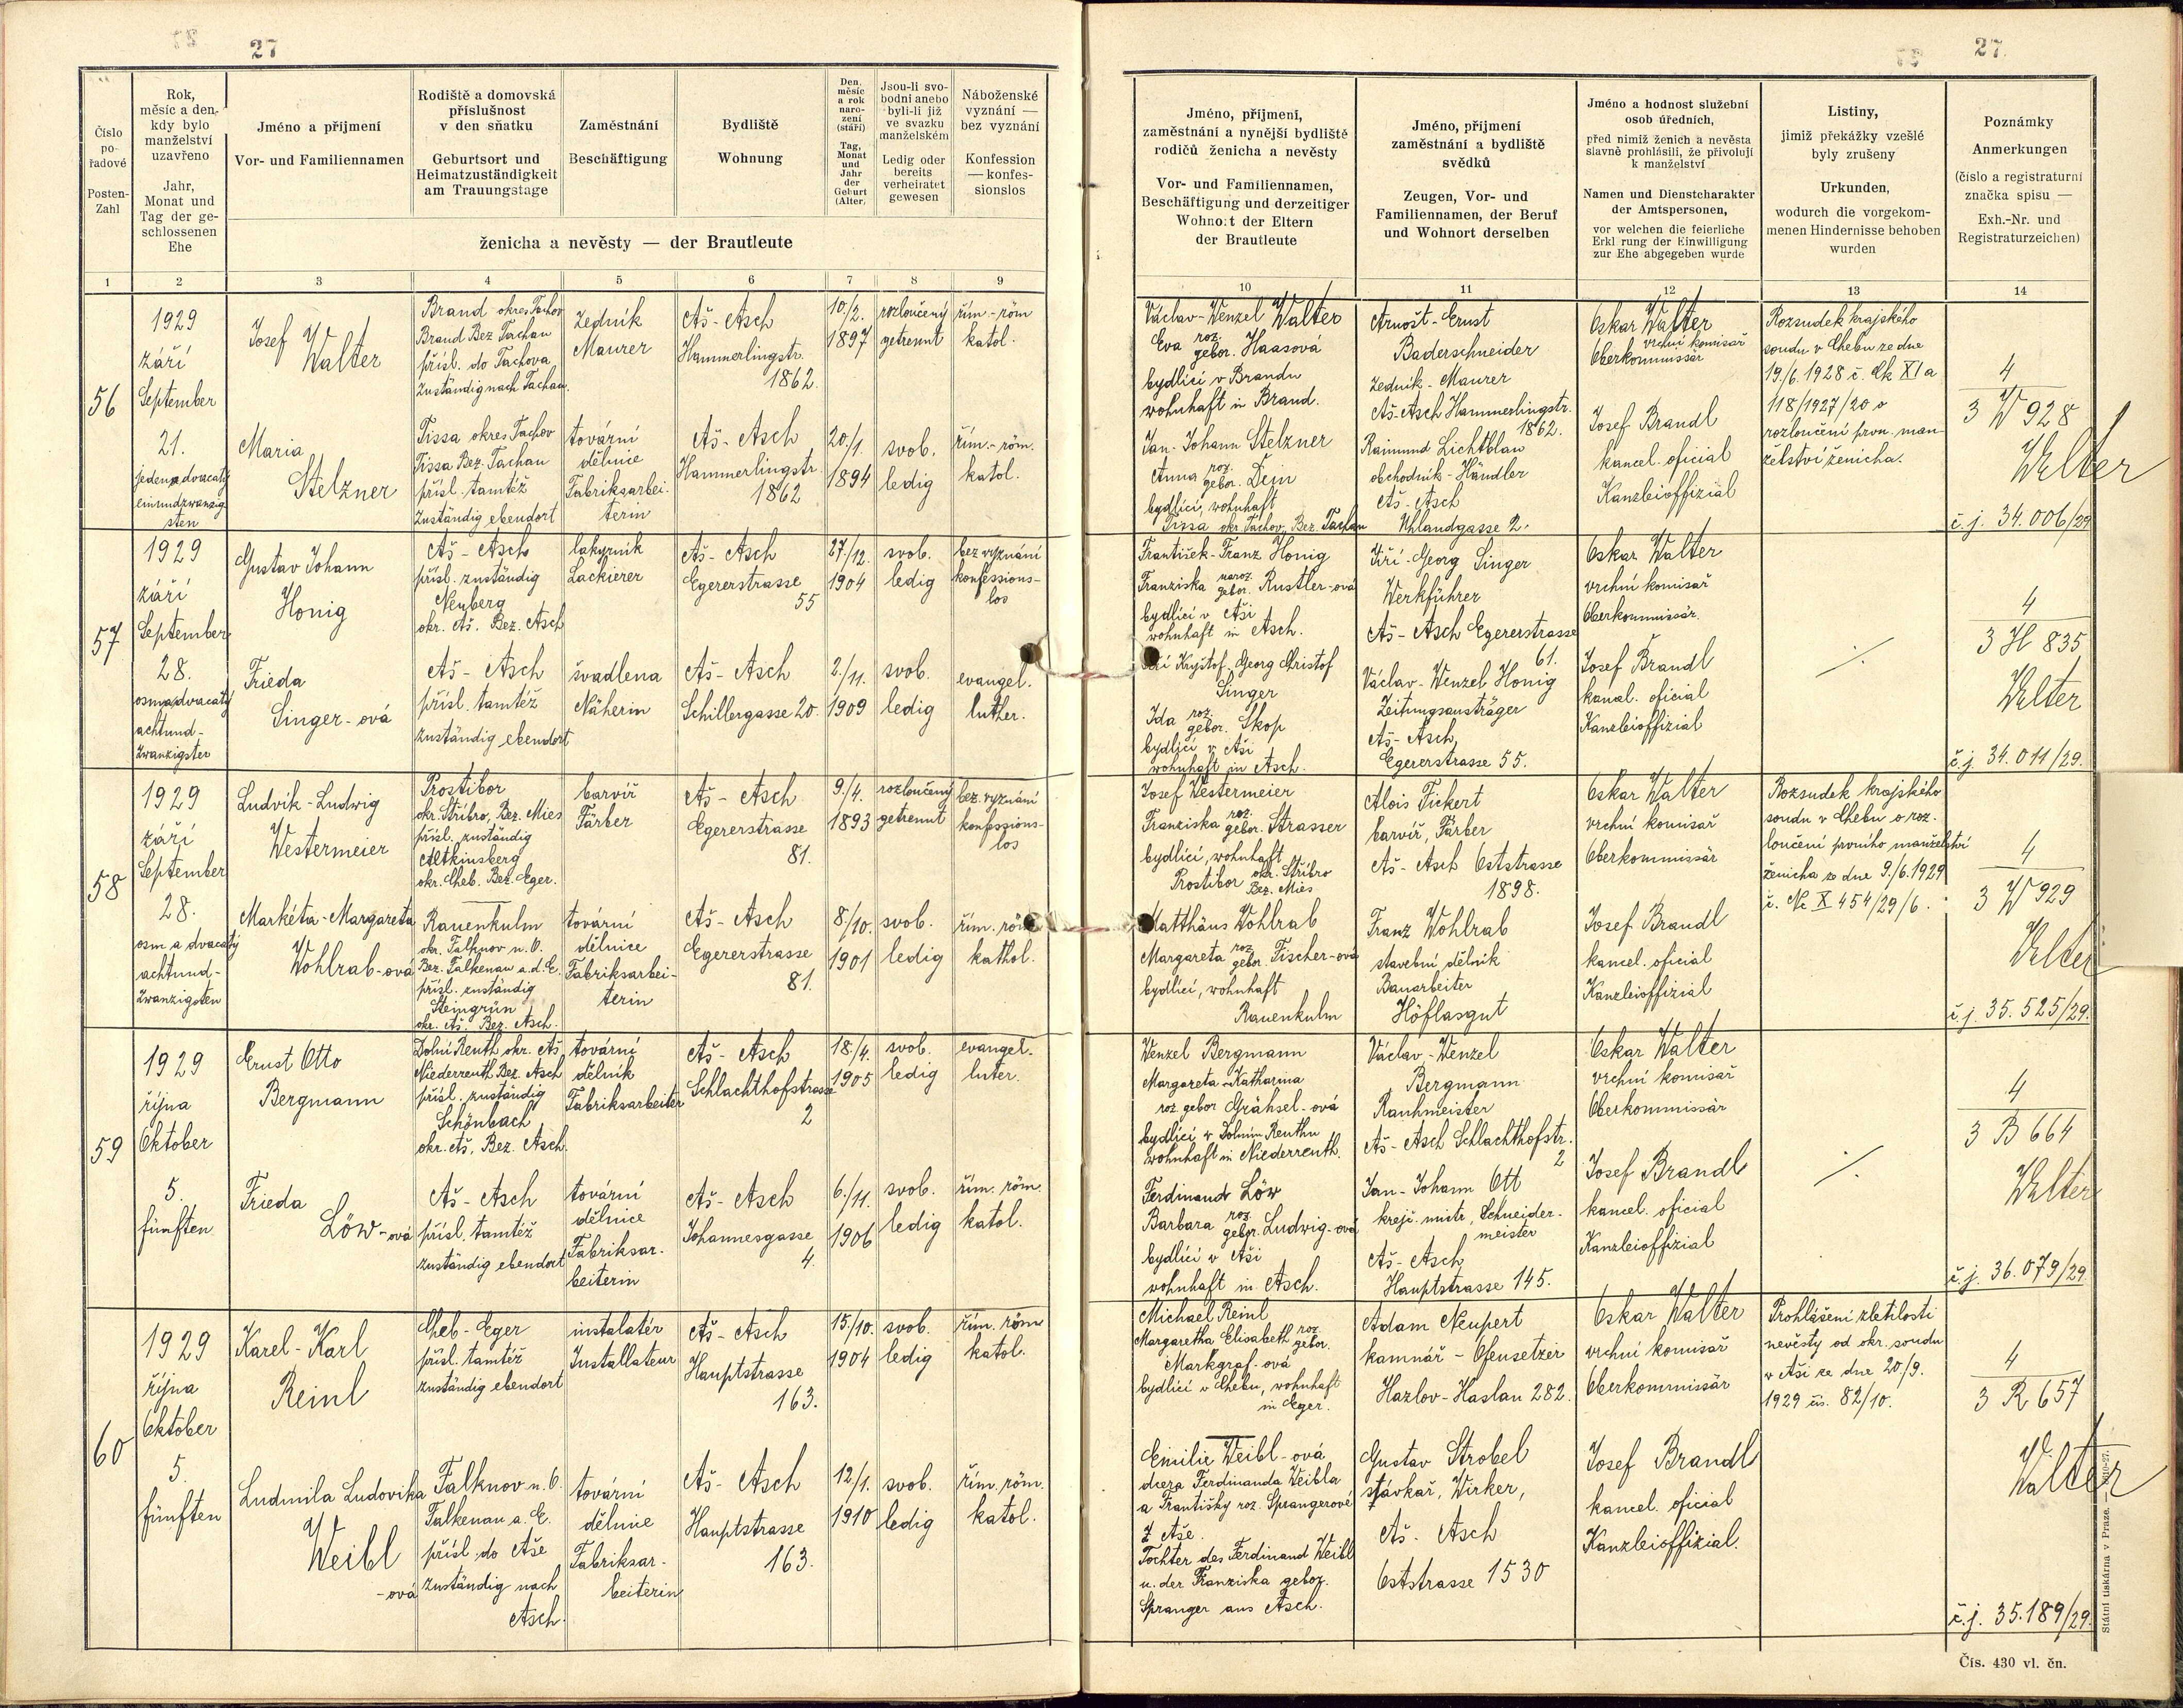 27
27.
Číslo pořadové
Posten-Zahl
Rok, měsíc a den, kdy bylo manželství uzavřeno
Jahr, Monat und Tag der geschlossenen Ehe
Jméno a příjmení
Vor- und Familiennamen
Rodiště a domovská příslušnost v den sňatku
Geburtsort und Heimatzuständigkeit am Trauungstage
Zaměstnání
Beschäftigung
Bydliště
Wohnung
Den, měsíc a rok narození (stáří)
Tag, Monat und Jahr der Geburt (Alter)
Jsou-li svobodni anebo byli-li již ve svazku manželském
Ledig oder bereits verheiratet gewesen
Náboženské vyznání — bez vyznání
Konfession — konfessionslos
ženicha a nevěsty — der Brautleute
Jméno, příjmení, zaměstnání a nynější bydliště rodičů ženicha a nevěsty
Vor- und Familiennamen, Beschäftigung und derzeitiger Wohnort der Eltern der Brautleute
Jméno, příjmení zaměstnání a bydliště svědků
Zeugen, Vor- und Familiennamen, der Beruf und Wohnort derselben
Jméno a hodnost služební osob úředních,
před nimiž ženich a nevěsta slavně prohlásili, že přivolují k manželství
Namen und Dienstcharakter der Amtspersonen,
vor welchen die feierliche Erkl rung der Einwilligung zur Ehe abgegeben wurde
Listiny,
jimiž překážky vzešlé byly zrušeny
Urkunden,
wodurch die vorgekommenen Hindernisse behoben wurden
Poznámky
Anmerkungen
(číslo a registraturní značka spisu —
Exh.-Nr. und Registraturzeichen)
1 2 3 4 5 6 7 8 9 10 11 12 13 14
56
1929
září
September
21.
jedenadvacatý
einundzwanzigsten
Josef
Walter
Brand okres Tachov
Brand Bez Tachau
přísl. do Tachova
Zuständig nach Tachau.
zedník
Maurer
Aš - Asch
Hammerlingstr.
1862.
10./2.
1897
rozloučený
getrennt
řím - röm
katol.
Maria
Stelzner
Tissa okres Tachov
Tissa Bez. Tachau
přísl. tamtéž
Zuständig ebendort
tovární
dělnice
Fabriksarbei-
terin
Aš - Asch
Hammerlingstr.
1862
20./1.
1894
svob.
ledig
řím. - röm.
katol.
Václav-Wenzel Walter
Eva roz. gebor. Haasová
bydlící v Brandu
wohnhaft in Brand.
Jan-Johann Stelzner
Anna roz. gebor. Dein
bydlící, wohnhaft
Tissa okr. Tachov, Bez. Tachau
Arnošt - Ernst
Baderschneider
zedník - Maurer
Aš-Asch Hammerlingstr.
1862.
Raimund Lichtblau
obchodník - Händler
Aš - Asch
Uhlandgasse 2.
Oskar Walter
vrchní komisař
Oberkommissär
Josef Brandl
kancel. oficial
Kanzleioffizial
Rozsudek krajského
soudu v Chebu ze dne
19./6. 1928 č. Ck XI a
118/1927/20 o
rozloučení prvn. man-
želství ženicha.
4
3 W 928
Walter
č.j. 34.006/29
57
1929
září
September
28.
osmadvacatý
achtund-
zwanzigster
Gustav Johann
Honig
Aš - Asch
přísl. zuständig
Neuberg
okr. Aš. Bez. Asch
lakyrník
Lackierer
Aš - Asch
Egererstrasse
55
27./12.
1904
svob.
ledig
bez vyznání
konfessions-
los
Frieda
Singer - ová
Aš - Asch
přísl. tamtéž
zuständig ebendort
švadlena
Näherin
Aš - Asch
Schillergasse 20.
2./11.
1909
svob.
ledig
evangel.
luther.
František-Franz Honig
Franziska naroz. gebor. Rustler-ová
bydlící v Aši
wohnhaft in Asch.
Kryštof, Georg Christof
Singer
Ida roz. gebor. Skop
bydlící v Aši
wohnhaft in Asch.
Jiří - Georg Singer
Werkführer
Aš - Asch Egererstrasse
61.
Václav - Wenzel Honig
Zeitungsausträger
Aš - Asch,
Egererstrasse 55.
Oskar Walter
vrchní komisař
Oberkommissär.
Josef Brandl
kancl. oficial
Kanzleioffizial
./.
4
3 H 835
Walter
č.j. 34.011/29.
58
1929
září
September
28.
osm a dvacatý
achtund-
zwanzigsten
Ludvík - Ludwig
Westermeier
Prostibor
okr. Stříbro, Bez. Mies
přísl. zuständig
Altkinsberg
okr. Cheb. Bez. Eger.
barvíř
Färber
Aš - Asch
Egererstrasse
81.
9./4.
1893
rozloučený
getrennt
bez. vyznání
konfessions-
los
Markéta - Margareta
Wohlrab-ová
Rauenkulm
okr. Falknov n. O.
Bez. Falkenau a. d. E.
přísl. zuständig
Steingrün
okr. Aš. Bez. Asch.
tovární
dělnice
Fabriksarbei-
terin
Aš - Asch
Egererstrasse
81.
8./10.
1901
svob.
ledig
řím. röm
kathol.
Josef Westermeier
Franziska roz. gebor. Strasser
bydlící, wohnhaft
Prostibor okr. Stříbro Bez. Mies
Matthäus Wohlrab
Margareta roz. gebor. Fischer-ová
bydlící, wohnhaft
Rauenkulm
Alois Fickert
barvíř, Färber
Aš - Asch Oststrasse
1898.
Franz Wohlrab
stavební dělník
Bauarbeiter
Höflasgut
Oskar Walter
vrchní komisař
Oberkommissär
Josef Brandl
kancel. oficial
Kanzleioffizial
Rozsudek krajského
soudu v Chebu o roz-
loučení prvního manželství
ženicha ze dne 9./6. 1929
č. Nc X 454/29/6.
4
3 W 929
Walter
č.j. 35.525/29.
59
1929
října
Oktober
5.
fünften
Ernst Otto
Bergmann
Dolní Reuth okr. Aš
Niederreuth Bez. Asch
přísl. zuständig
Schönbach
okr. Aš, Bez. Asch.
tovární
dělník
Fabriksarbeiter
Aš - Asch
Schlachthofstrasse
2
18./4.
1905
svob.
ledig
evangel.
luter.
Frieda
Löw - ová
Aš - Asch
přísl. tamtéž
zuständig ebendort
tovární
dělnice
Fabriksar-
beiterin
Aš - Asch
Johannesgasse
4.
6./11.
1906
svob.
ledig
řím. röm.
katol.
Wenzel Bergmann
Margareta - Katharina
roz. gebor Grähsel - ová
bydlící v Dolním Reuthu
wohnhaft in Niederreuth.
Ferdinand Löw
Barbara roz. gebor. Ludwig-ová
bydlící v Aši
wohnhaft in Asch.
Václav - Wenzel
Bergmann
Rauhmeister
Aš - Asch Schlachthofstr.
2
Jan - Johann Ott
krejč. mistr, Schneider-
meister
Aš - Asch
Hauptstrasse 145.
Oskar Walter
vrchní komisař
Oberkommissär
Josef Brandl
kancel. oficial
Kanzleioffizial
./.
4
3 B 664
Walter
č.j. 36.079/29
60
1929
října
Oktober
5.
fünften
Karel - Karl
Reinl
Cheb - Eger
přísl. tamtéž
zuständig ebendort
instalatér
Installateur
Aš - Asch
Hauptstrasse
163.
15./10.
1904
svob.
ledig
řím. röm
katol.
Ludmila Ludovika
Weibl
- ová
Falknov n. O.
Falkenau a. E.
přísl. do Aše
zuständig nach
Asch.
tovární
dělnice
Fabriksar-
beiterin
Aš - Asch
Hauptstrasse
163.
12/1.
1910
svob.
ledig
řím. röm.
katol.
Michael Reinl
Margaretha Elisabeth roz. gebor.
Markgraf - ová
bydlící v Chebu, wohnhaft
in Eger.
Emilie Weibl - ová
dcera Ferdinanda Weibla
a Františky roz. Sprangerové
z Aše.
Tochter des Ferdinand Weibl
u. der Franziska gebor.
Spranger aus Asch.
Adam Neupert
kamnář - Ofensetzer
Hazlov - Haslau 282.
Gustav Strobel
stávkař, Wirker,
Aš - Asch
Oststrasse 1530
Oskar Walter
vrchní komisař
Oberkommissär
Josef Brandl
kancel. oficial
Kanzleioffizial.
Prohlášení zletilosti
nevěsty od okr. soudu
v Aši ze dne 20./9.
1929 čís. 82/10.
4
3 R 657
Walter
č.j. 35.189/29.
Státní tiskárna v Praze.
Čís. 430 vl. čn.